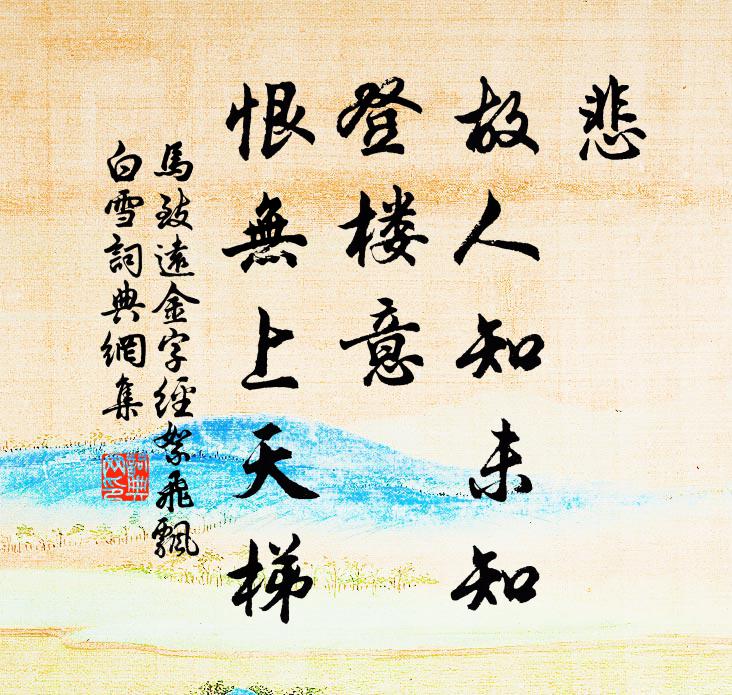 悲
故人知未知
登楼意
恨無上天梯
馬致遠金字經絮飛飄
白雪詞典網集
詞典